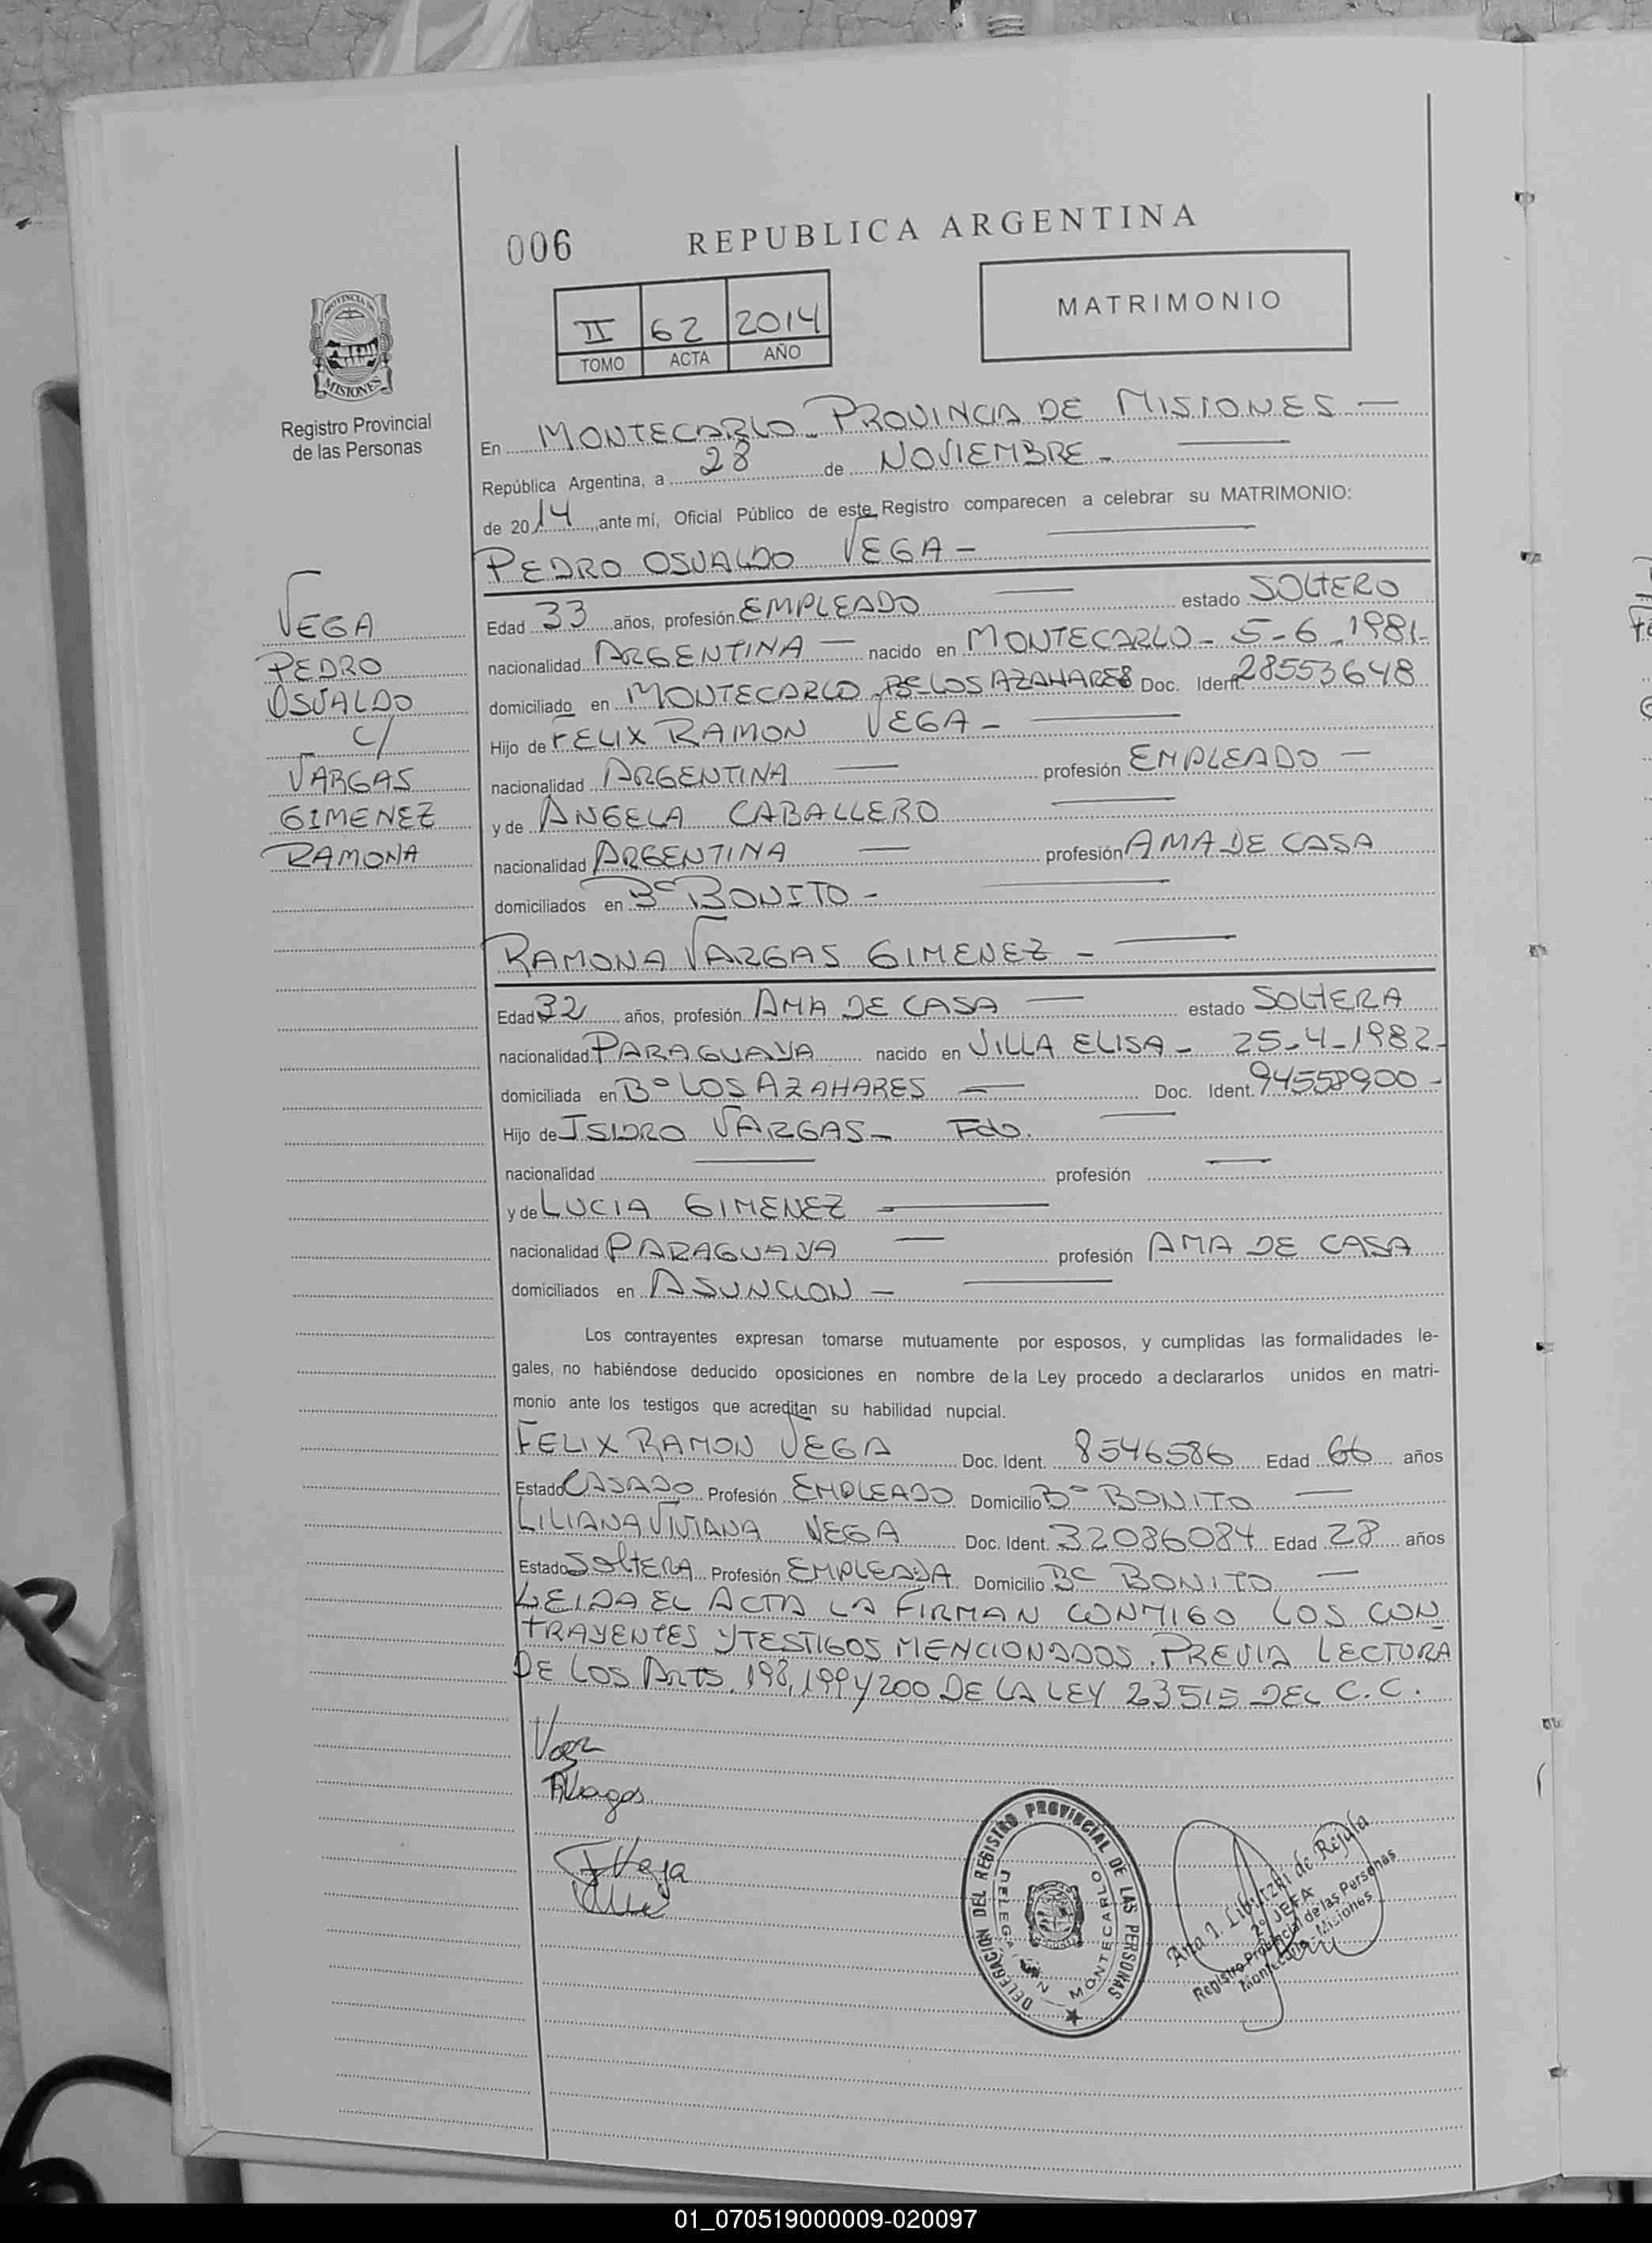 006 REPUBLICA ARGENTINA
II 62 2014
TOMO ACTA AÑO
MATRIMONIO
PROVINCIA DE
MISIONES
Registro Provincial
de las Personas
VEGA
PEDRO
OSVALDO
C/
VARGAS
GIMENEZ
RAMONA
En MONTECARLO - PROVINCIA DE MISIONES -
República Argentina, a 28 de NOVIEMBRE -
de 2014, ante mí, Oficial Público de este Registro comparecen a celebrar su MATRIMONIO:
PEDRO OSVALDO VEGA -
Edad 33 años, profesión EMPLEADO estado SOLTERO
nacionalidad ARGENTINA - nacido en MONTECARLO - 5-6-1981-
domiciliado en MONTECARLO - Bº LOS AZAHARES Doc. Ident. 28553648
Hijo de FELIX RAMON VEGA -
nacionalidad ARGENTINA - profesión EMPLEADO -
y de ANGELA CABALLERO
nacionalidad ARGENTINA - profesión AMA DE CASA
domiciliados en Bº BONITO -
RAMONA VARGAS GIMENEZ -
Edad 32 años, profesión AMA DE CASA - estado SOLTERA
nacionalidad PARAGUAYA nacido en VILLA ELISA - 25-4-1982-
domiciliada en Bº LOS AZAHARES - Doc. Ident. 94558900 -
Hijo de ISIDRO VARGAS - Fdo.
nacionalidad - profesión -
y de LUCIA GIMENEZ -
nacionalidad PARAGUAYA - profesión AMA DE CASA
domiciliados en ASUNCION -
Los contrayentes expresan tomarse mutuamente por esposos, y cumplidas las formalidades le-
gales, no habiéndose deducido oposiciones en nombre de la Ley procedo a declararlos unidos en matri-
monio ante los testigos que acreditan su habilidad nupcial.
FELIX RAMON VEGA Doc. Ident. 8546586 Edad 66 años
Estado CASADO Profesión EMPLEADO Domicilio Bº BONITO -
LILIANA VIVIANA VEGA Doc. Ident. 32086084 Edad 28 años
Estado SOLTERA Profesión EMPLEADA Domicilio Bº BONITO -
LEIDA EL ACTA LA FIRMAN CONMIGO LOS CON
TRAYENTES Y TESTIGOS MENCIONADOS. PREVIA LECTURA
DE LOS ARTS. 198, 199 Y 200 DE LA LEY 23515 DEL C.C.
F Vega
DELEGACION DEL REGISTRO PROVINCIAL DE LAS PERSONAS
DELEGACION MONTECARLO
2º JEFA
Registro Provincial de las Personas
Montecarlo - Misiones
01_070519000009-020097